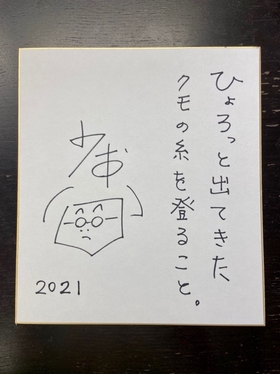 ひょろっと出てきた
クモの糸を登ること。
2021